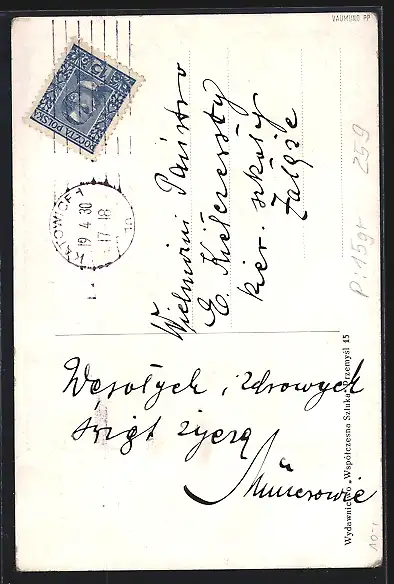 Wesołych i zdrowych
świąt życzą
Wielmożni Państwo
kier. szkoły
Załęże
KATOWICE
19 4 30
17-18
1a
POCZTA POLSKA
Wydawnictwo „Współczesna Sztuka" Przemyśl 15
VADUMUND PP
Pi 15gr
259
10-,